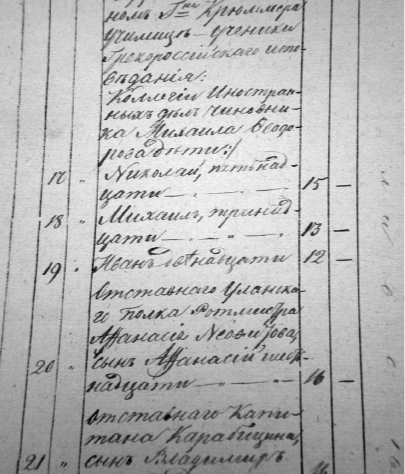 номъ Г-на Крюммера
училищѣ – ученики
Грекороссійскаго испо-
вѣданія:
Коллегіи Иностран-
ныхъ дѣлъ чиновни-
ка Михаила Ѳеодо-
рова дѣти:/
17 „ Николай, пятьнад-
цати — . — . — 15 —
18 „ Михаилъ, тринад-
цати — . — „ — 13 —
19 „ Иванъ двѣнадцати 12 —
отставнаго Уланска-
го полка Ротмистра
Аѳанасія
сынъ Аѳанасій шест-
20 „ надцати — „ — „ — 16 —
отставнаго Капи-
тана Карабицина,
21 „ сынъ Владимиръ
16